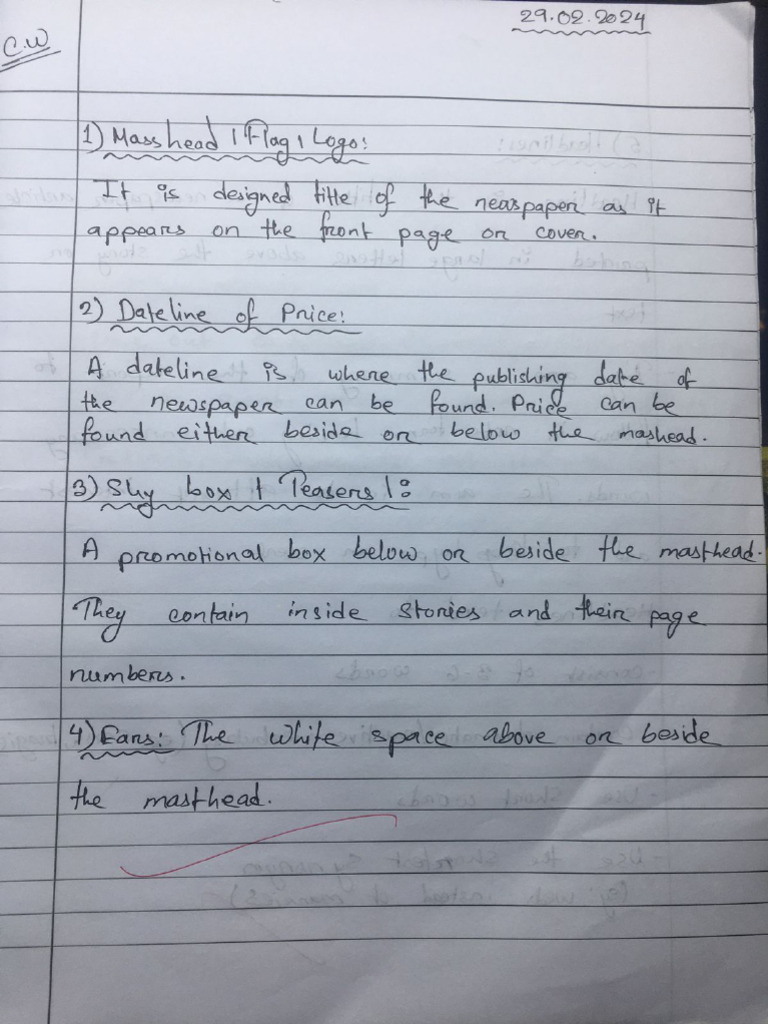 29.02.2024
C.W
1) Masshead | Flag | Logo:
It is designed title of the newspaper as it
appears on the front page or cover.
2) Dateline of Price:
A dateline is where the publishing date of
the newspaper can be found. Price can be
found either beside or below the mashead.
3) Sky box | Teasers |:
A promotional box below or beside the masthead.
They contain inside stories and their page
numbers.
4) Ears: The white space above or beside
the masthead.